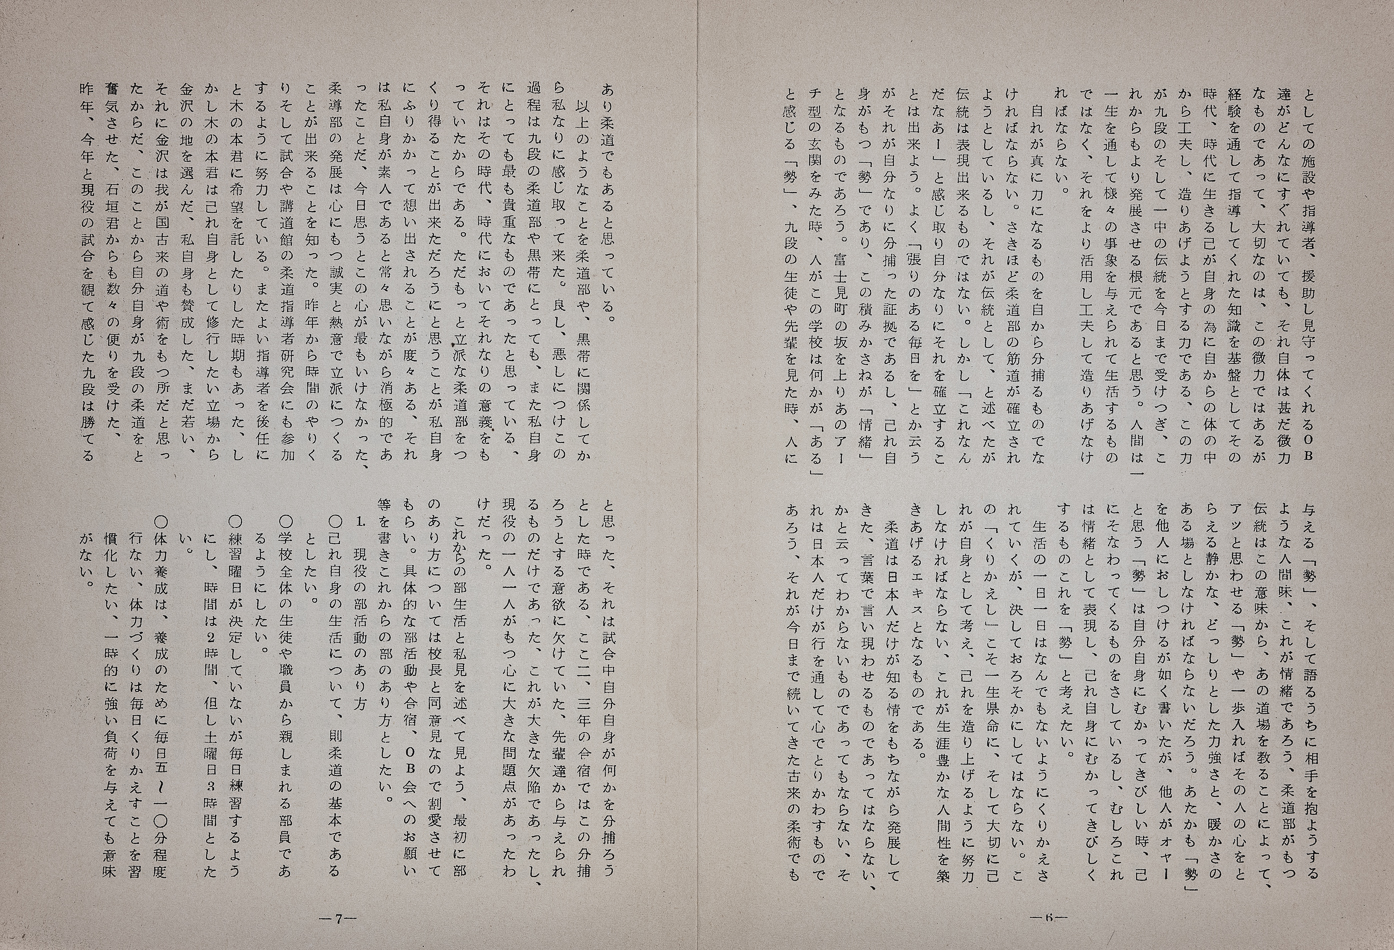 としての施設や指導者、援助し見守ってくれるOB
達がどんなにすぐれていても、それ自体は甚だ微力
なものであって、大切なのは、この微力ではあるが
経験を通して指導してくれた知識を基盤としてその
時代、時代に生きる己が自身の為に自からの体の中
から工夫し、造りあげようとする力である、この力
が九段のそして一中の伝統を今日まで受けつぎ、こ
れからもより発展させる根元であると思う。人間は一
一生を通して様々の事象を与えられて生活するもの
ではなく、それをより活用し工夫して造りあげなけ
ればならない。
自れが真に力になるものを自から分捕るものでな
ければならない。さきほど柔道部の筋道が確立され
ようとしているし、それが伝統として、と述べたが
伝統は表現出来るものではない。しかし「これなん
だなあー」と感じ取り自分なりにそれを確立するこ
とは出来よう。よく「張りのある毎日を」とか云う
がそれが自分なりに分捕った証拠であるし、己れ自
身がもつ「勢」であり、この積みかさねが「情緒」
となるものであろう。富士見町の坂を上りあのアー
チ型の玄関をみた時、人がこの学校は何かが「ある」
と感じる「勢」、九段の生徒や先輩を見た時、人に
与える「勢」、そして語るうちに相手を抱ようする
ような人間味、これが情緒であろう、柔道部がもつ
伝統はこの意味から、あの道場を教ることによって、
アッと思わせる「勢」や一歩入ればその人の心をと
らえる静かな、どっしりとした力強さと、暖かさの
ある場としなければならないだろう。あたかも「勢」
を他人におしつけるが如く書いたが、他人がオヤー
と思う「勢」は自分自身にむかってきびしい時、己
にそなわってくるものをさしているし、むしろこれ
は情緒として表現し、己れ自身にむかってきびしく
するものこれを「勢」と考えたい。
生活の一日一日はなんでもないようにくりかえさ
れていくが、決しておろそかにしてはならない。こ
の「くりかえし」こそ一生県命に、そして大切に己
れが自身として考え、己れを造り上げるように努力
しなければならない、これが生涯豊かな人間性を築
きあげるエキスとなるものである。
柔道は日本人だけが知る情をもちながら発展して
きた、言葉で言い現わせるものであってはならない、
かと云ってわからないものであってもならない、そ
れは日本人だけが行を通して心でとりかわすもので
あろう、それが今日まで続いてきた古来の柔術でも
―6―
あり柔道でもあると思っている。
以上のようなことを柔道部や、黒帯に関係してか
ら私なりに感じ取って来た。良し、悪しにつけこの
過程は九段の柔道部や黒帯にとっても、また私自身
にとっても最も貴重なものであったと思っている、
それはその時代、時代においてそれなりの意義をも
っていたからである。ただもっと立派な柔道部をつ
くり得ることが出来ただろうにと思うことが私自身
にふりかかって想い出されることが度々ある、それ
は私自身が素人であると常々思いながら消極的であ
ったことだ、今日思うとこの心が最もいけなかった、
柔導部の発展は心にもつ誠実と熱意で立派につくる
ことが出来ることを知った。昨年から時間のやりく
りそして試合や講道館の柔道指導者研究会にも参加
するように努力している。またよい指導者を後任に
と木の本君に希望を託したりした時期もあった、し
かし木の本君は己れ自身として修行したい立場から
金沢の地を選んだ、私自身も賛成した、まだ若い、
それに金沢は我が国古来の道や術をもつ所だと思っ
たからだ、このことから自分自身が九段の柔道をと
奮気させた、石垣君からも数々の便りを受けた、
昨年、今年と現役の試合を観て感じた九段は勝てる
と思った、それは試合中自分自身が何かを分捕ろう
とした時である、ここ二、三年の合宿ではこの分捕
ろうとする意欲に欠けていた、先輩達から与えられ
るものだけであった、これが大きな欠陥であったし、
現役の一人一人がもつ心に大きな問題点があったわ
けだった。
これからの部生活と私見を述べて見よう、最初に部
のあり方については校長と同意見なので割愛させて
もらい。具体的な部活動や合宿、OB会へのお願い
等を書きこれからの部のあり方としたい。
1. 現役の部活動のあり方
〇己れ自身の生活について、則柔道の基本である
としたい。
〇学校全体の生徒や職員から親しまれる部員であ
るようにしたい。
〇練習曜日が決定していないが毎日練習するよう
にし、時間は2時間、但し土曜日3時間とした
い。
〇体力養成は、養成のために毎日五〜一〇分程度
行ない、体力づくりは毎日くりかえすことを習
慣化したい、一時的に強い負荷を与えても意味
がない。
―7―